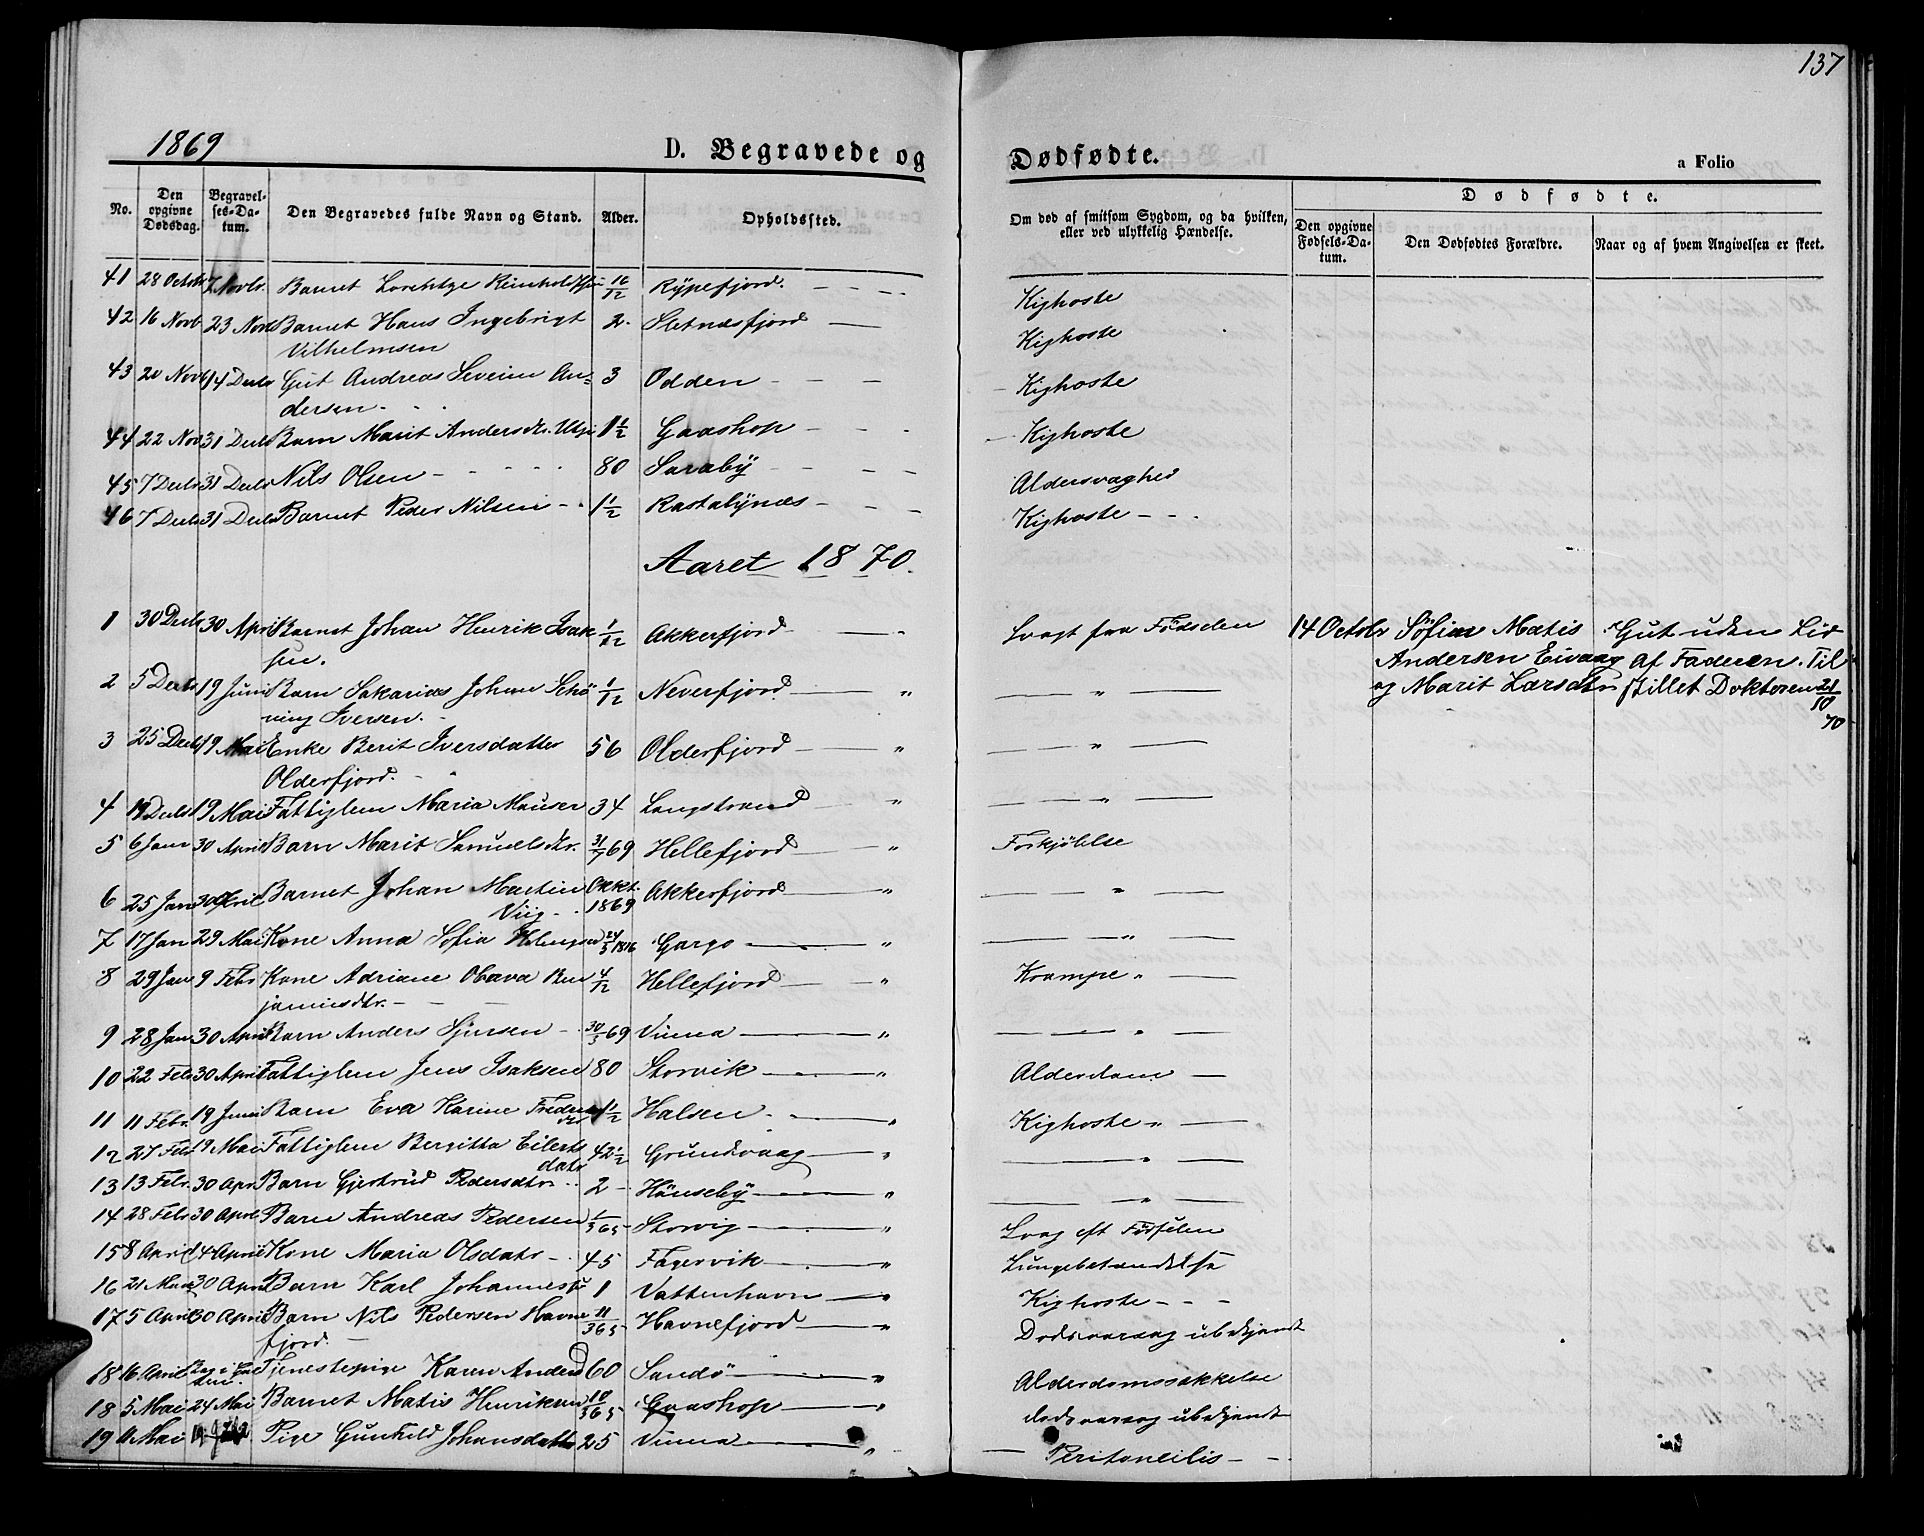 137
1869 D. Begravede og Dødfødte. a Folio
No. Den opgivne Dødsdag. Begravelses-Datum. Den Begravedes fulde Navn og Stand. Alder. Opholdssted. Om død af smitsom Sygdom, og da hvilken, eller ved ulykkelig Hændelse. Dødfødte. Den opgivne Fødsels-Datum. Den Dødfødtes Forældre. Naar og af hvem Angivelsen er skeet.
41 28 Octobr 7 Novbr. Barnet 10/12 Rypefjord. Kighoste
42 16 Novb 23 Nov Barnet Hans Ingebrigt 2 Sletnæsfjord Kighoste
Vilhelmsen
43 20 Novb 14 Decbr Gut Andreas Severin An= 3 Odden Kighoste
dersen
44 22 Nov 31 Decbr Barn Marit Andersdtr. 1½ Gaashop Kighoste
45 7 Decbr 31 Decbr Nils Olsen 80 Saraby Aldersvaghed
46 7 Decbr 31 Decbr Barnet Peder Nilsen 1½ Rastabynæs Kighoste
Aaret 1870.
1 30 Decbr 30 April Barnet Johan Henrik Isak 1/12 Akkerfjord Svagt fra Fødselen 14 Octobr Søfin Matis Gut uden Liv
sen. Andersen Eivaag Af Faderen. Til
2 5 Decbr 19 Juni Barn Sakarias Johan Schø 1/12 Neverfjord " og Marit Larsdtr stillet Doktoren 21/10 70
ning Iversen.
3 25 Decbr 19 Mai Enke Berit Iversdatter 56 Olderfjord " "
Olderfjord.
4 19 Decbr 19 Mai Fattiglem Maria Mauser 34 Langstrand " "
5 6 Jan 30 April Barn Marit Samuelsdtr. 31/7 69 Hellefjord " Forkjølelse
6 25 Jan 30 April Barnet Johan Martin Oktt. 1869 Akkerfjord " "
Viig
7 17 Jan 29 Mai Kone Anna Sofia 24/5 1816 Gargo " "
8 29 Jan 9 Febr Kone Adriane Obava Ben 4/12 Hellefjord " Krampe "
jaminsdtr.
9 28 Jan 30 April Barn Anders Sjursen 30/5 69 Vinna " "
10 22 Febr 30 April Fattiglem Jens Isaksen 80 Storvik " Alderdom
11 11 Febr. 19 Juni Barn Eva Karine 1½ Halsen " Kighoste "
12 27 Febr 19 Mai Fattiglem Bergitta Eilerts 42½ Grundvaag " "
datr
13 13 Febr. 30 Apr Barn Gjertrud Pedersdtr 2 Hönseby " "
14 28 Febr 30 April Barn Andreas Pedersen 1/365 Storvig " Svag eft Fødselen
15 8 April 4 April Kone Maria Olsdatr 45 Fagervik " Lungebetændelse
16 21 Mars 30 April Barn Karl Johannes 1 Vattenhavn " Kighoste
17 5 April 30 April Barn Nils Pedersen Havne 11/365 Havnefjord " Dødsaarsag ubekjendt
fjord.
18 16 April Tjenestepige Karen Anders 60 Sandö " Alderdomssvækkelse
18 5 Mai 24 Mai Barnet Matis Henriksen 10/365 Gaashop " dødsaarsag ubekjendt
19 11 Mai Pige Gunhild Johansdattr 25 Vinna " Peritoneitis